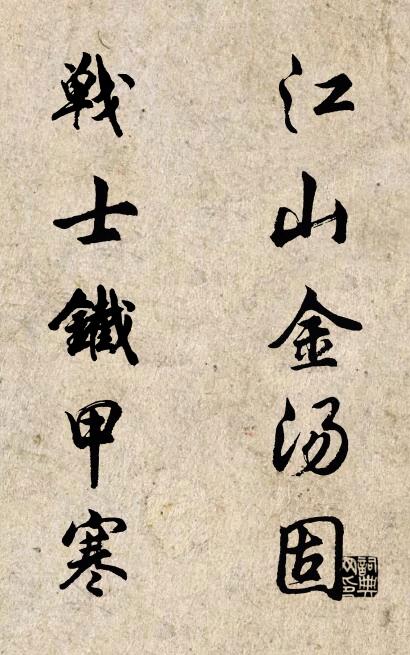 江山金汤固
戦士鐵甲寒